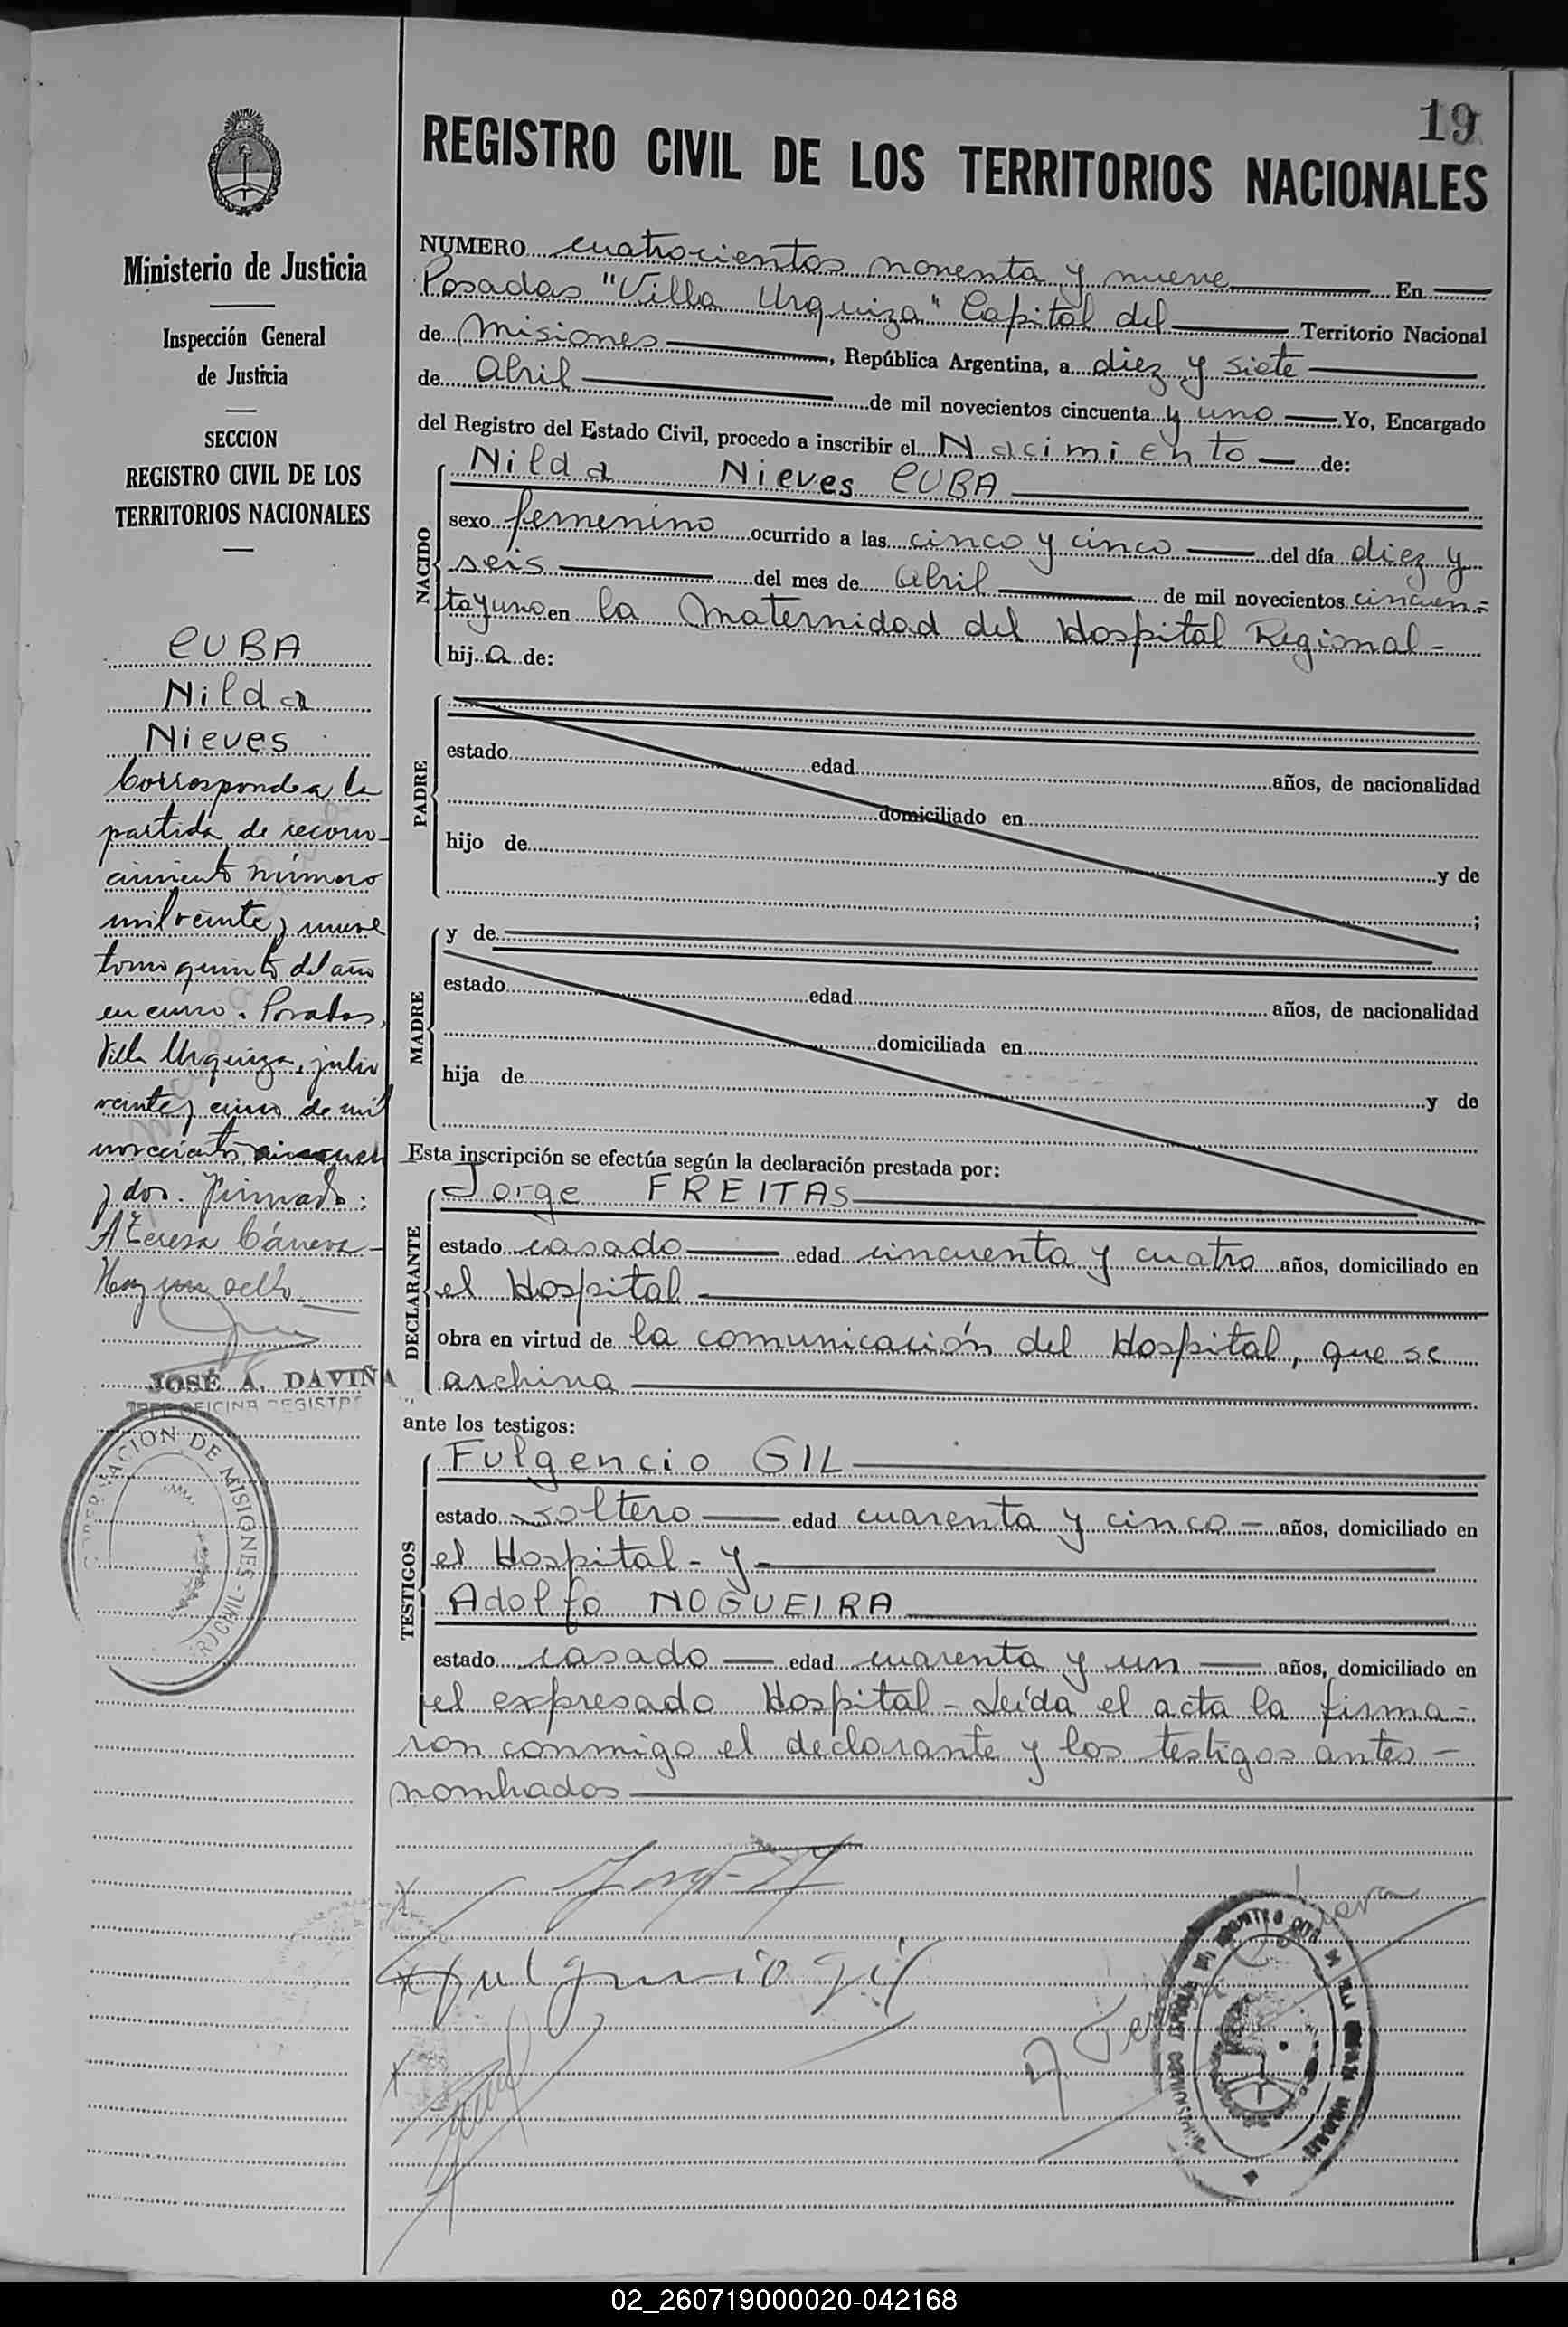 19
REGISTRO CIVIL DE LOS TERRITORIOS NACIONALES
Ministerio de Justicia
Inspección General
de Justicia
SECCION
REGISTRO CIVIL DE LOS
TERRITORIOS NACIONALES
CUBA
Nilda
Nieves
Corresponde a la
partida de recono-
cimiento número
mil veinte y nueve
tomo quinto del año
en curso. Posadas,
Villa Urquiza, julio
veinte y cinco de mil
novecientos cincuenta
y dos. Firmado:
A Teresa Cáneva-
Hay un sello
JOSÉ A. DAVIÑA
JEFE OFICINA REGISTRO
GOBERNACION DE MISIONES-
NUMERO cuatrocientos noventa y nueve En
Posadas "Villa Urquiza" Capital del Territorio Nacional
de Misiones, República Argentina, a diez y siete
de Abril de mil novecientos cincuenta y uno Yo, Encargado
del Registro del Estado Civil, procedo a inscribir el Nacimiento de:
NACIDO
Nilda Nieves CUBA
sexo femenino ocurrido a las cinco y cinco del día diez y
seis del mes de Abril de mil novecientos cincuen=
ta y uno en la Maternidad del Hospital Regional-
hij a de:
PADRE
estado edad años, de nacionalidad
domiciliado en
hijo de y de
;
MADRE
y de
estado edad años, de nacionalidad
domiciliada en
hija de y de
Esta inscripción se efectúa según la declaración prestada por:
DECLARANTE
Jorge FREITAS
estado casado edad cincuenta y cuatro años, domiciliado en
el Hospital
obra en virtud de la comunicación del Hospital, que se
archiva
ante los testigos:
TESTIGOS
Fulgencio GIL
estado soltero edad cuarenta y cinco - años, domiciliado en
el Hospital - y -
Adolfo NOGUEIRA
estado casado edad cuarenta y un años, domiciliado en
el expresado Hospital - Leída el acta la firma=
ron conmigo el declarante y los testigos antes -
nombrados
Fulgencio Gil
02_260719000020-042168